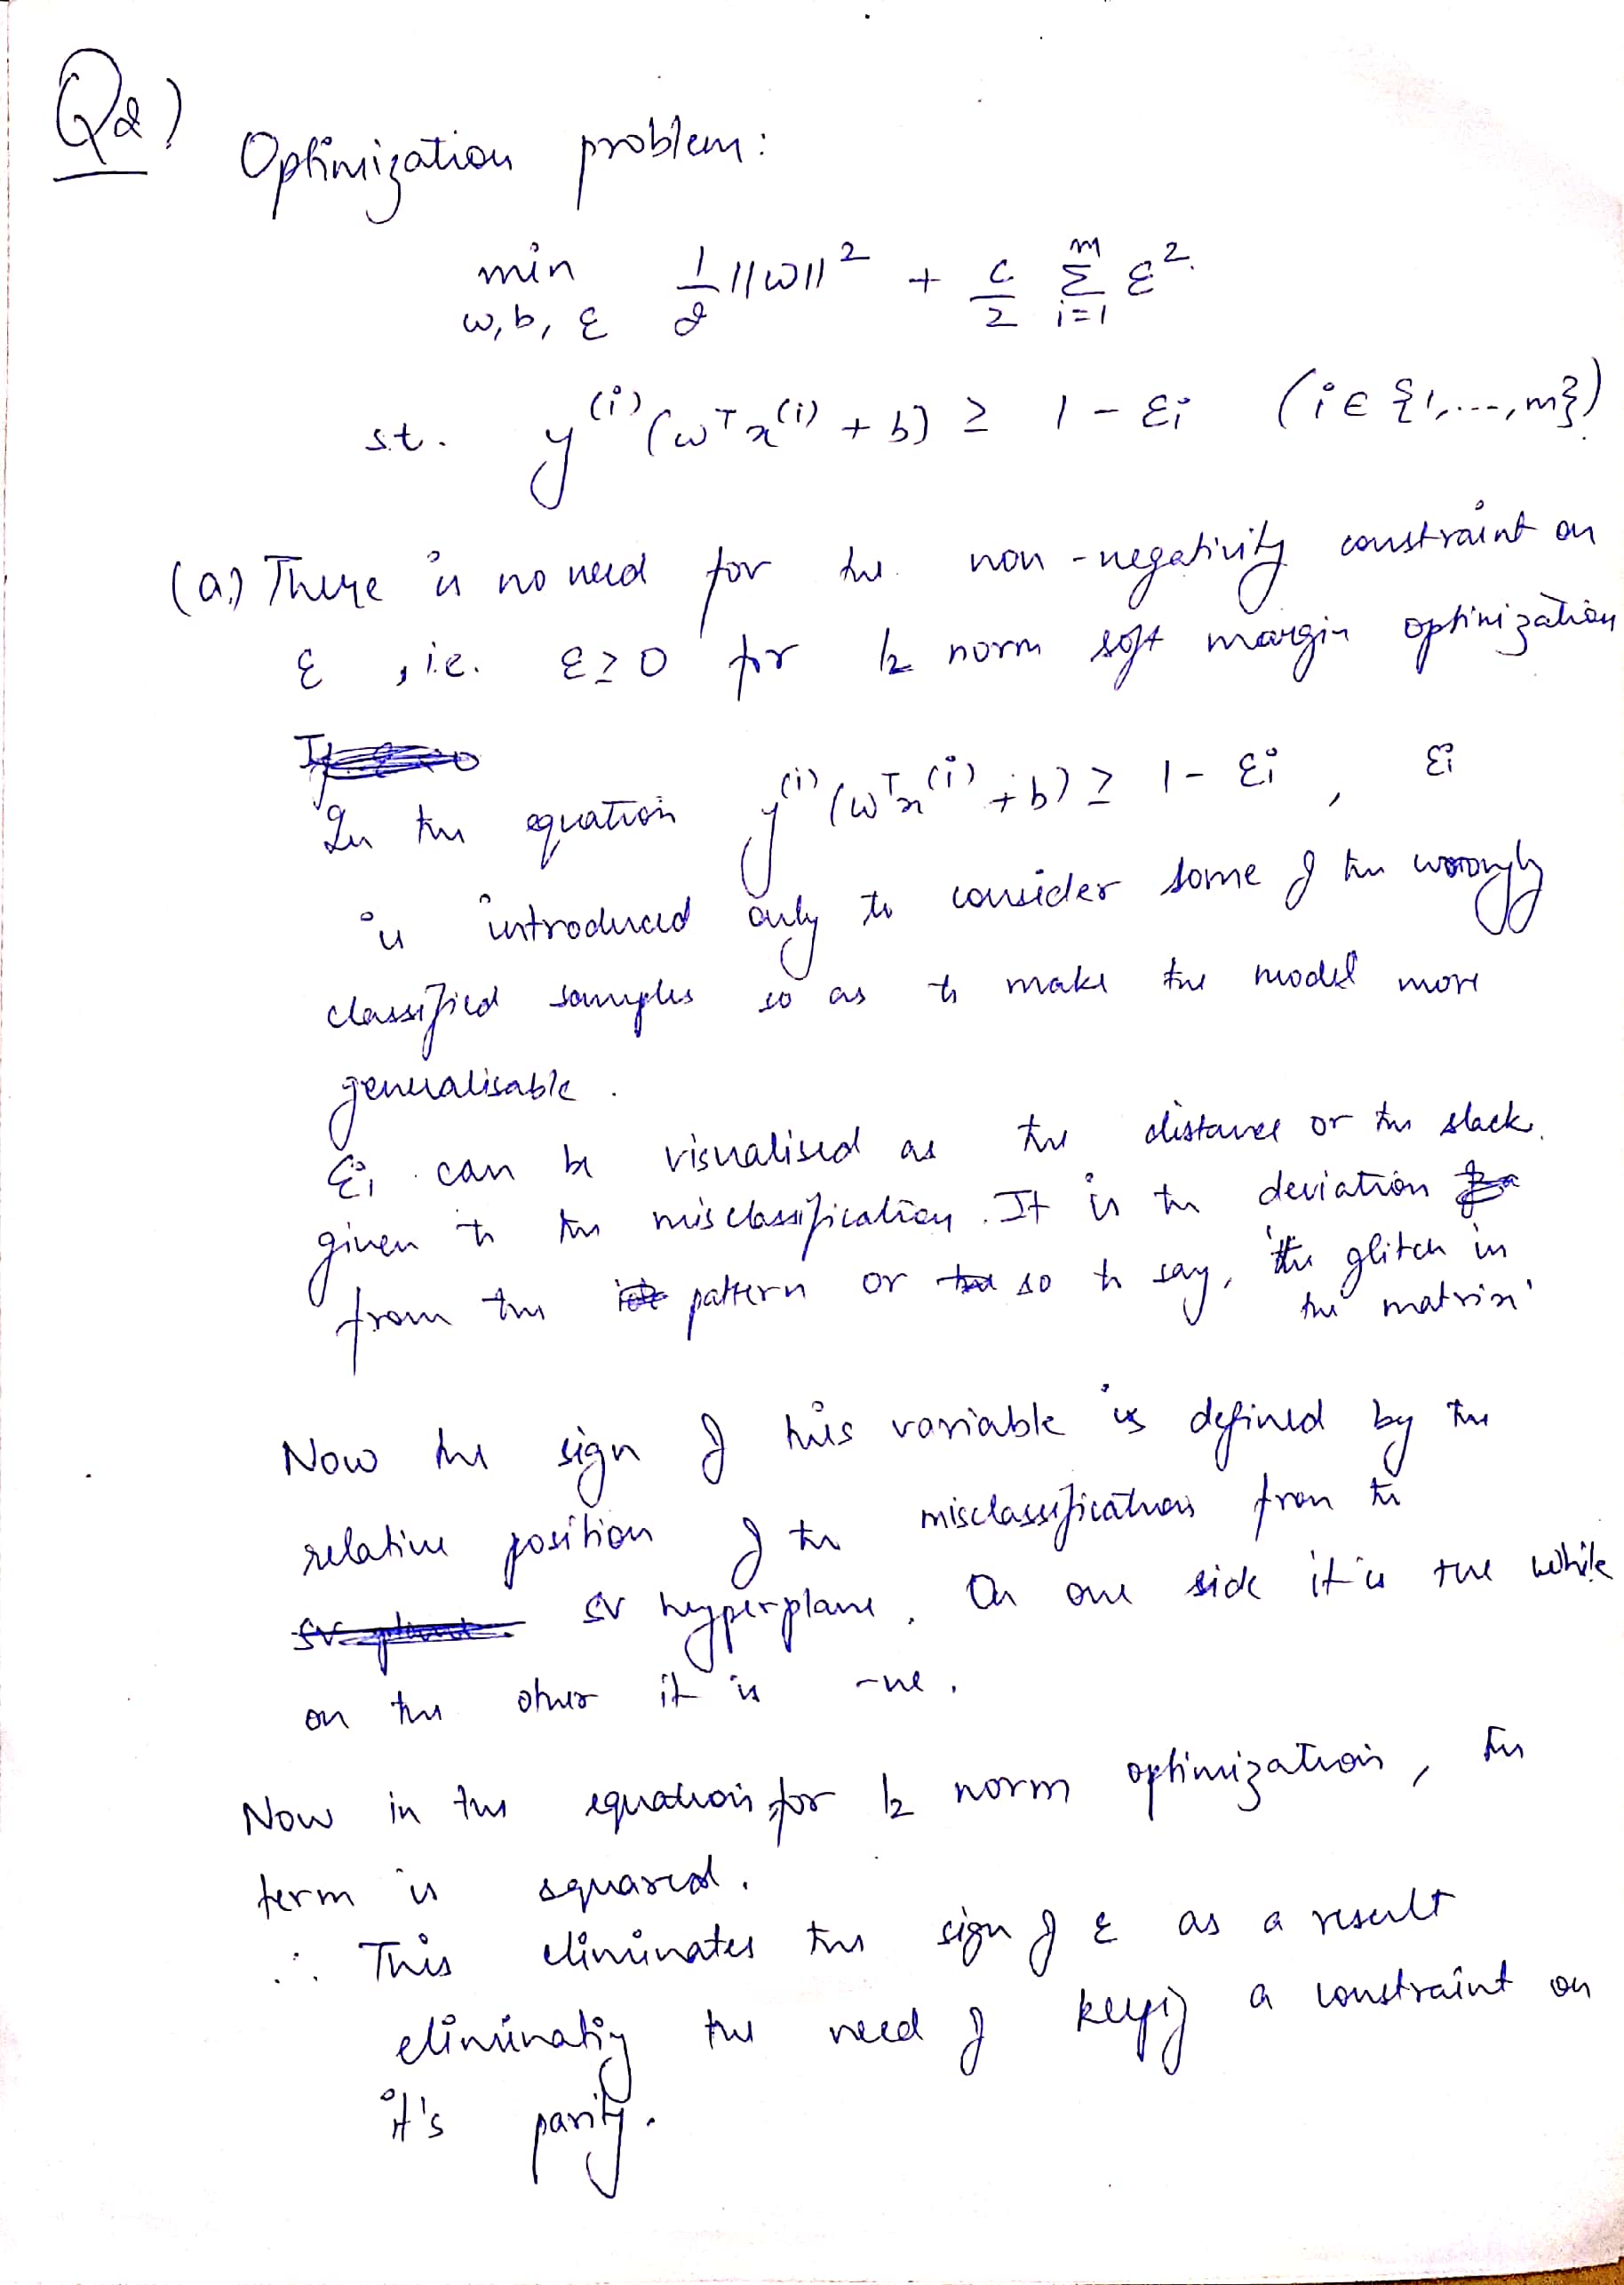 Q2)
Optimization problem:
min w, b, ε 1/2 ||w||² + C/2 Σ i=1 m ε².
s.t. y⁽ⁱ⁾(wᵀx⁽ⁱ⁾ + b) ≥ 1 - εi (i ∈ {1,...,m})
(a.) There is no need for the non-negativity constraint on
ε, i.e. ε ≥ 0 for l2 norm soft margin optimization
In the equation y⁽ⁱ⁾(wᵀx⁽ⁱ⁾ + b) ≥ 1 - εi, εi
is introduced only to consider some of the wrongly
classified samples so as to make the model more
generalisable.
εi can be visualised as the distance or the slack
given to the misclassification. It is the deviation
from the pattern or so to say, 'the glitch in
the matrix'
Now the sign of this variable is defined by the
relative position of the misclassification from the
SV hyperplane. On one side it is +ve while
on the other it is -ve.
Now in the equation for l2 norm optimization, the
term is squared.
∴ This eliminates the sign of ε as a result
eliminating the need of keepig a constraint on
it's parity.